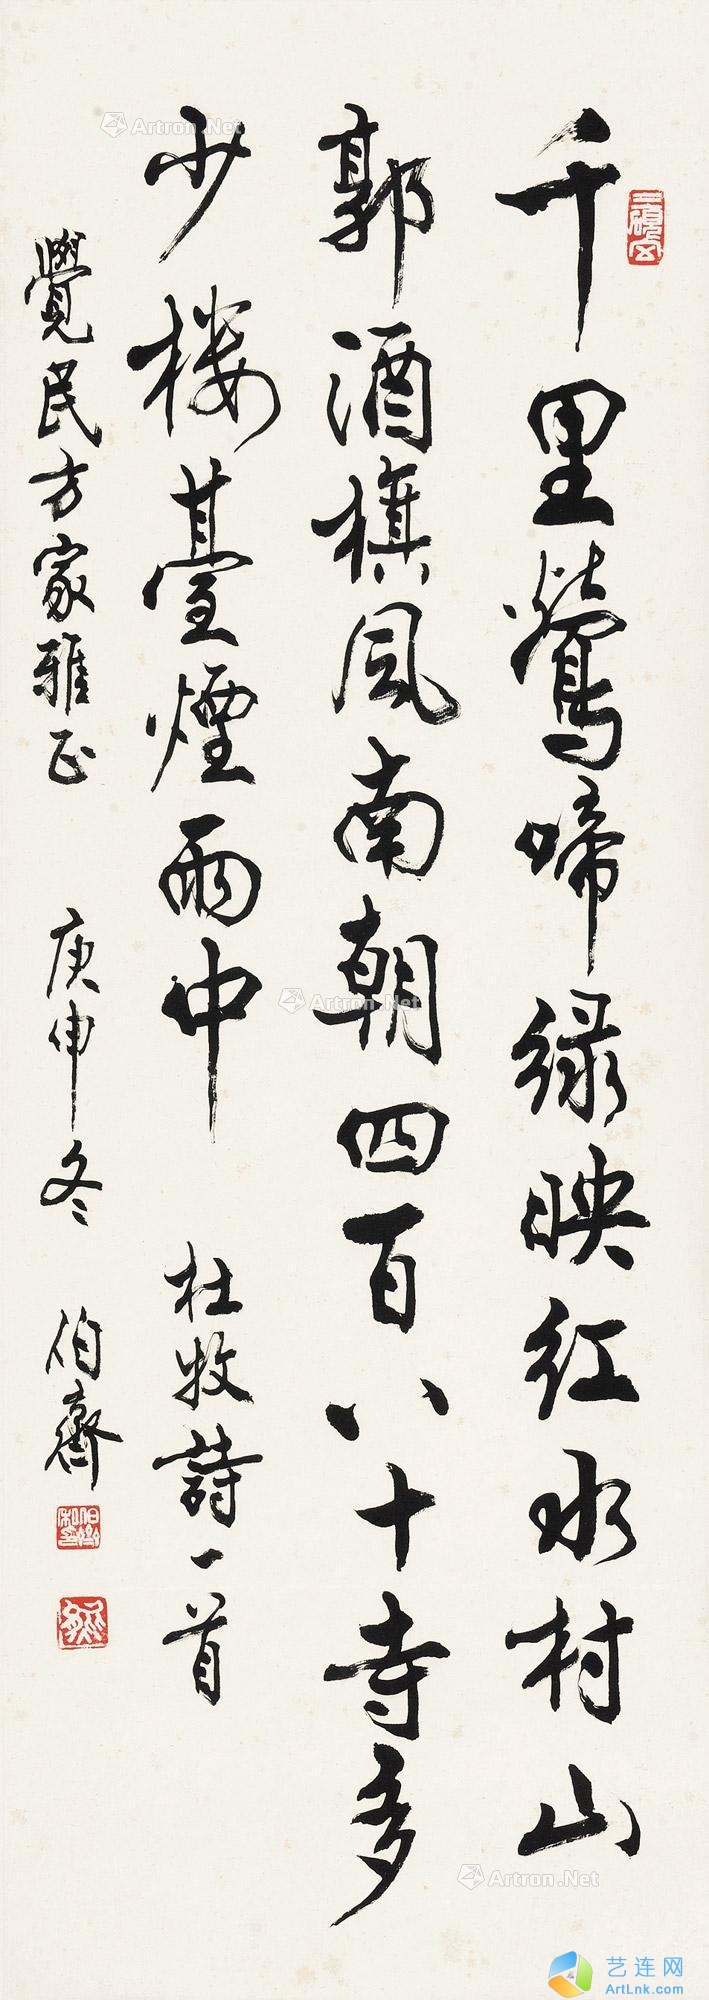 千里鶯啼绿映红水村山
郭酒旗风南朝四百八十寺多
少楼臺煙雨中
杜牧詩一首
覺民方家雅正
庚申冬
伯齋
Artron.Net
Artron.Net
Artron.Net
艺连网
ArtLnk.com